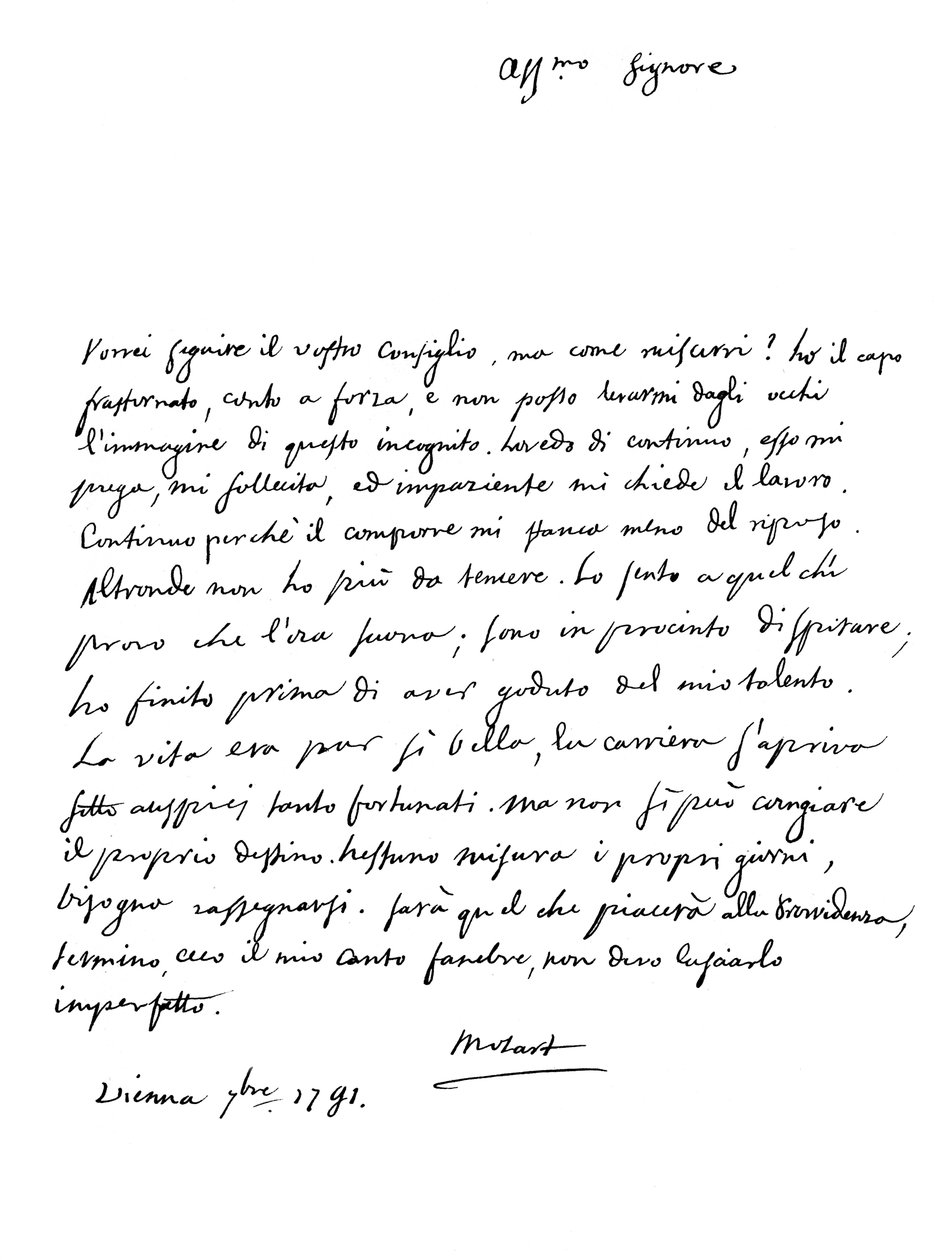 Aff.mo Signore
Vorrei seguire il vostro Consiglio, ma come riuscirvi? ho il capo
frastornato, conto a forza, e non posso levarmi dagli occhi
l'immagine di questo incognito. Lo vedo di continuo, esso mi
prega, mi sollecita, ed impaziente mi chiede il lavoro.
Continuo perchè il comporre mi stanca meno del riposo.
Altronde non ho più da temere. Lo sento a quel chi
provo che l'ora suona; sono in procinto di spirare;
ho finito prima di aver goduto del mio talento.
La vita era pur sì bella, la carriera s'apriva
sotto auspicj tanto fortunati. Ma non si può cangiare
il proprio destino. Nessuno misura i propri giorni,
bisogna rassegnarsi. sarà quel che piacerà alla Provvidenza,
termino, ecco il mio canto funebre, non devo lasciarlo
imperfetto.
Mozart
Vienna 7bre 1791.